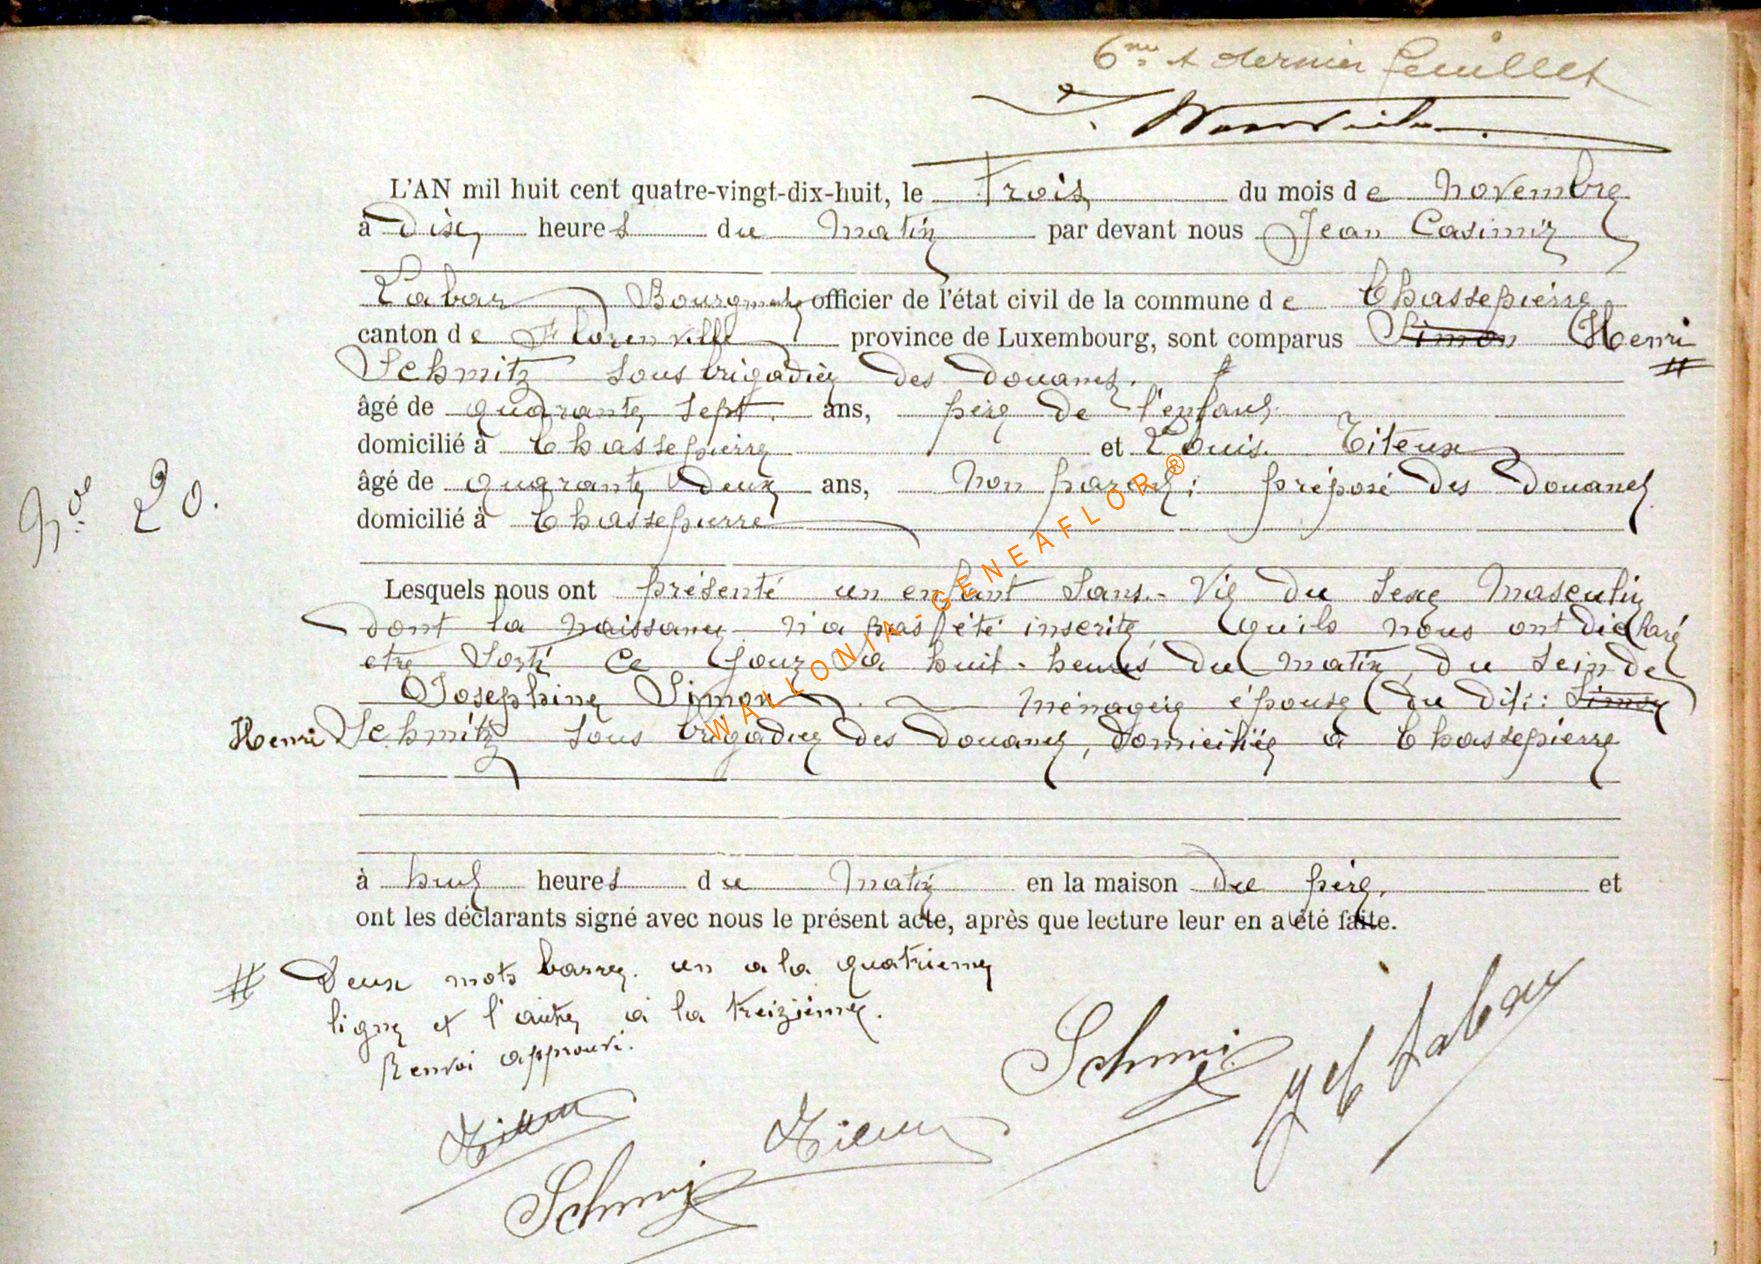 6me et dernier feuillet
L'AN mil huit cent quatre-vingt-dix-huit, le Trois du mois de Novembre
à Dix heures du Matin par devant nous Jean Casimir
Labar Bourgmestre officier de l'état civil de la commune de Chassepierre
canton de Florenville province de Luxembourg, sont comparus Simon Henri #
Schmitz Sous brigadier des douanes. #
âgé de quarante Sept. ans, père de l'enfant
domicilié à Chassepierre et Louis Titeux
âgé de quarante Deux ans, Non parent; préposé des Douanes
domicilié à Chassepierre
No. 20.
Lesquels nous ont présenté un enfant Sans-Vie du Sexe Masculin
dont la Naissance n'a pas été inscrite, qu'ils nous ont déclaré
etre Sorti Ce jour a huit heures du Matin, du Sein de
Josephine Simon Ménagère épouse du dit: Simon
Henri Schmitz Sous brigadier des Douanes, Domiciliée a Chassepierre
à huit heures du Matin en la maison du père, et
ont les déclarants signé avec nous le présent acte, après que lecture leur en a été faite.
# Deux mots barrés. un a la quatrieme
ligne et l'autre à la treizième.
Renvoi approuvé.
Schmitz
JC Labar
Titeux
Titeux
Schmitz
WALLONIA-GENEAFLOR®